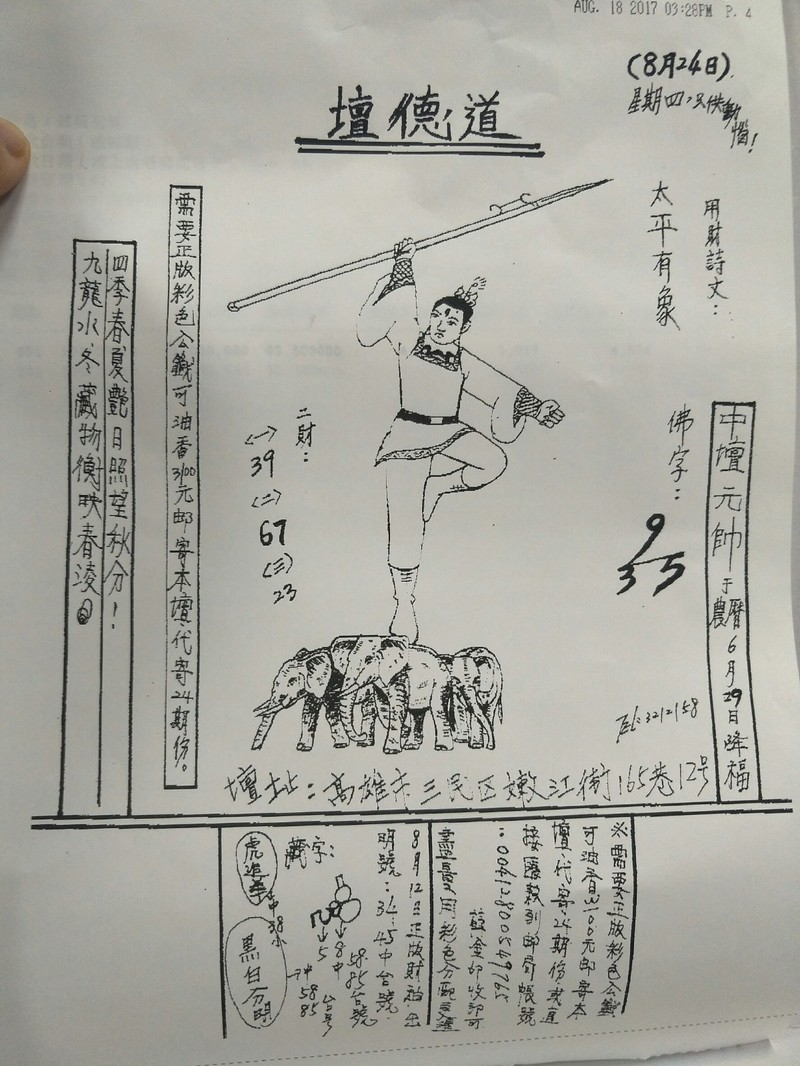 AUG. 18 2017 03:28PM P. 4
(8月24日)
星期四
壇德道
用財詩文：
太平有象
佛字：
9
35
中壇元帥于農曆6月29日降福
TEL:3212158
二財：
(一)
39
(二)
67
(三)
23
需要正版彩色公籤可油香3100元邮寄本壇代寄24期份。
四季春夏艷日照望秋分！
九龍水冬藏物衡映春淩
壇址：高雄市三民区嫩江街165巷12号
※需要正版彩色公籤
可油香3100元邮寄本
壇代寄24期份或直
接匯款到邮局帳號
盡量用彩色分
8月12日正版財神出
明號：34.45中台號
藏字：
→8中
→5
58.
85台號
台号
虎追羊
中38小
黑白分明
→中58
85